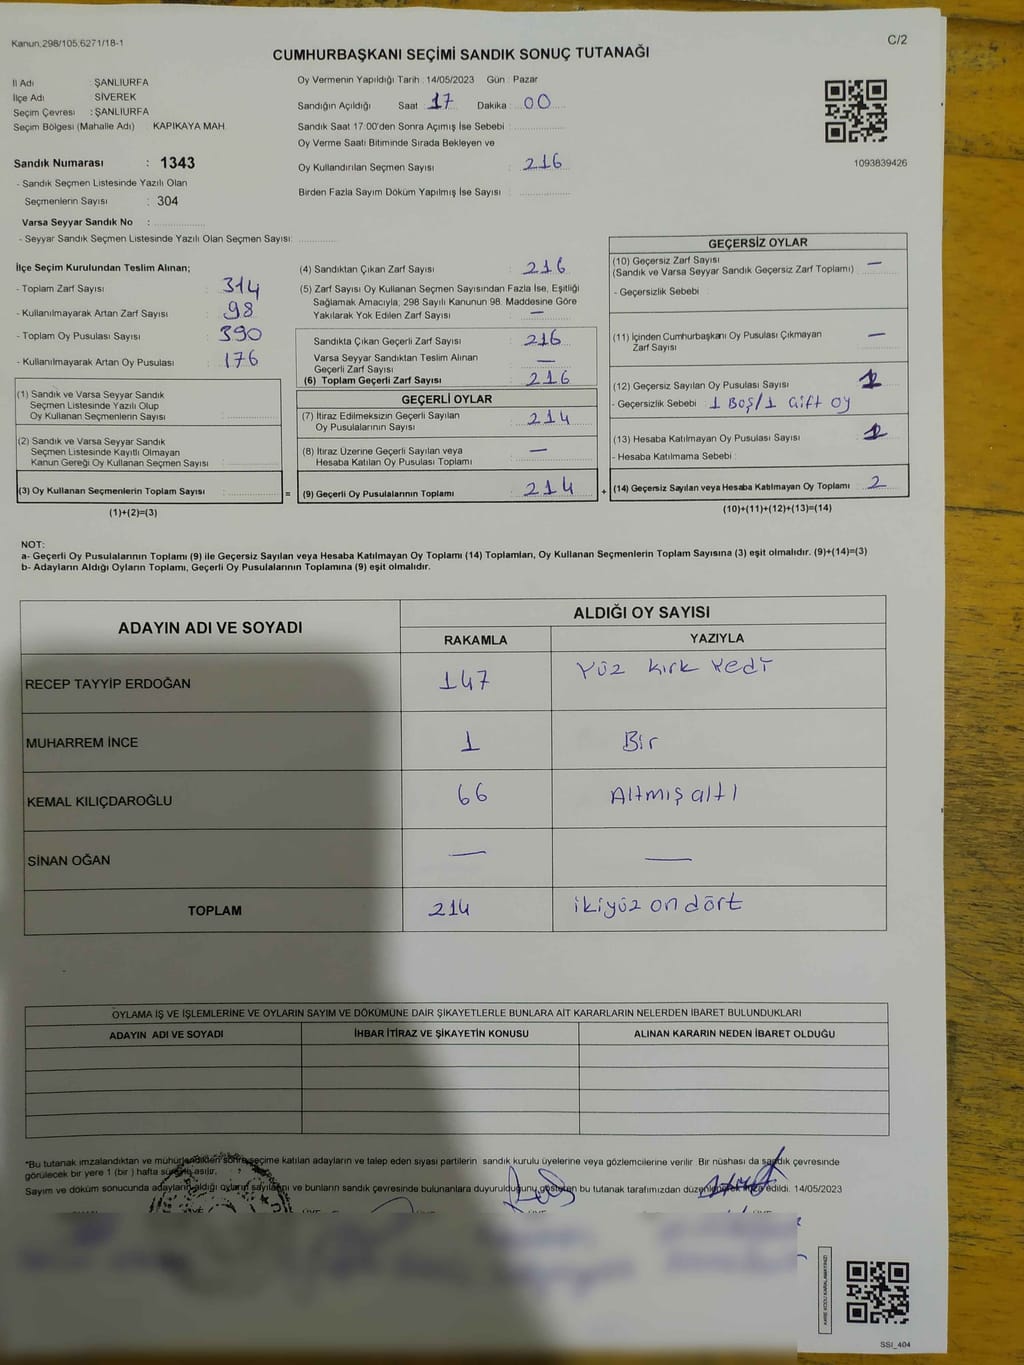 Kanun:298/105,6271/18-1
C/2
CUMHURBAŞKANI SEÇİMİ SANDIK SONUÇ TUTANAĞI
İl Adı : ŞANLIURFA
İlçe Adı : SİVEREK
Seçim Çevresi : ŞANLIURFA
Seçim Bölgesi (Mahalle Adı) : KAPIKAYA MAH.
Sandık Numarası : 1343
- Sandık Seçmen Listesinde Yazılı Olan
Seçmenlerin Sayısı : 304
Varsa Seyyar Sandık No :
- Seyyar Sandık Seçmen Listesinde Yazılı Olan Seçmen Sayısı:
Oy Vermenin Yapıldığı Tarih : 14/05/2023 Gün : Pazar
Sandığın Açıldığı Saat : 17 Dakika : 00
Sandık Saat 17:00'den Sonra Açımış İse Sebebi :
Oy Verme Saati Bitiminde Sırada Bekleyen ve
Oy Kullandırılan Seçmen Sayısı : 216
Birden Fazla Sayım Döküm Yapılmış İse Sayısı :
1093839426
İlçe Seçim Kurulundan Teslim Alınan;
- Toplam Zarf Sayısı : 314
- Kullanılmayarak Artan Zarf Sayısı : 98
- Toplam Oy Pusulası Sayısı : 390
- Kullanılmayarak Artan Oy Pusulası : 176
(1) Sandık ve Varsa Seyyar Sandık
Seçmen Listesinde Yazılı Olup
Oy Kullanan Seçmenlerin Sayısı :
(2) Sandık ve Varsa Seyyar Sandık
Seçmen Listesinde Kayıtlı Olmayan
Kanun Gereği Oy Kullanan Seçmen Sayısı :
(3) Oy Kullanan Seçmenlerin Toplam Sayısı :
(1)+(2)=(3)
(4) Sandıktan Çıkan Zarf Sayısı : 216
(5) Zarf Sayısı Oy Kullanan Seçmen Sayısından Fazla İse, Eşitliği
Sağlamak Amacıyla; 298 Sayılı Kanunun 98. Maddesine Göre
Yakılarak Yok Edilen Zarf Sayısı : —
Sandıkta Çıkan Geçerli Zarf Sayısı : 216
Varsa Seyyar Sandıktan Teslim Alınan
Geçerli Zarf Sayısı : —
(6) Toplam Geçerli Zarf Sayısı : 216
GEÇERLİ OYLAR
(7) İtiraz Edilmeksizin Geçerli Sayılan
Oy Pusulalarının Sayısı : 214
(8) İtiraz Üzerine Geçerli Sayılan veya
Hesaba Katılan Oy Pusulası Toplamı : —
= (9) Geçerli Oy Pusulalarının Toplamı : 214
GEÇERSİZ OYLAR
(10) Geçersiz Zarf Sayısı
(Sandık ve Varsa Seyyar Sandık Geçersiz Zarf Toplamı) : —
- Geçersizlik Sebebi :
(11) İçinden Cumhurbaşkanı Oy Pusulası Çıkmayan
Zarf Sayısı : —
(12) Geçersiz Sayılan Oy Pusulası Sayısı :
- Geçersizlik Sebebi : 1 Boş/1 Çift oy
(13) Hesaba Katılmayan Oy Pusulası Sayısı :
- Hesaba Katılmama Sebebi :
+ (14) Geçersiz Sayılan veya Hesaba Katılmayan Oy Toplamı : 2
(10)+(11)+(12)+(13)=(14)
NOT:
a- Geçerli Oy Pusulalarının Toplamı (9) ile Geçersiz Sayılan veya Hesaba Katılmayan Oy Toplamı (14) Toplamları, Oy Kullanan Seçmenlerin Toplam Sayısına (3) eşit olmalıdır. (9)+(14)=(3)
b- Adayların Aldığı Oyların Toplamı, Geçerli Oy Pusulalarının Toplamına (9) eşit olmalıdır.
ADAYIN ADI VE SOYADI
ALDIĞI OY SAYISI
RAKAMLA YAZIYLA
RECEP TAYYİP ERDOĞAN 147 Yüz kırk yedi
MUHARREM İNCE 1 Bir
KEMAL KILIÇDAROĞLU 66 Altmış altı
SİNAN OĞAN — —
TOPLAM 214 ikiyüz on dört
OYLAMA İŞ VE İŞLEMLERİNE VE OYLARIN SAYIM VE DÖKÜMÜNE DAİR ŞİKAYETLERLE BUNLARA AİT KARARLARIN NELERDEN İBARET BULUNDUKLARI
ADAYIN ADI VE SOYADI İHBAR İTİRAZ VE ŞİKAYETİN KONUSU ALINAN KARARIN NEDEN İBARET OLDUĞU
*Bu tutanak imzalandıktan ve mühürlendikten sonra seçime katılan adayların ve talep eden siyasi partilerin sandık kurulu üyelerine veya gözlemcilerine verilir Bir nüshası da sandık çevresinde
görülecek bir yere 1 (bir ) hafta süreyle asılır.
Sayım ve döküm sonucunda adayların aldığı oyların sayılarını ve bunların sandık çevresinde bulunanlara duyurulduğunu gösteren bu tutanak tarafımızdan düzenlenerek imza edildi. 14/05/2023
KARE KODU KARALAMAYINIZ!
SSI_404